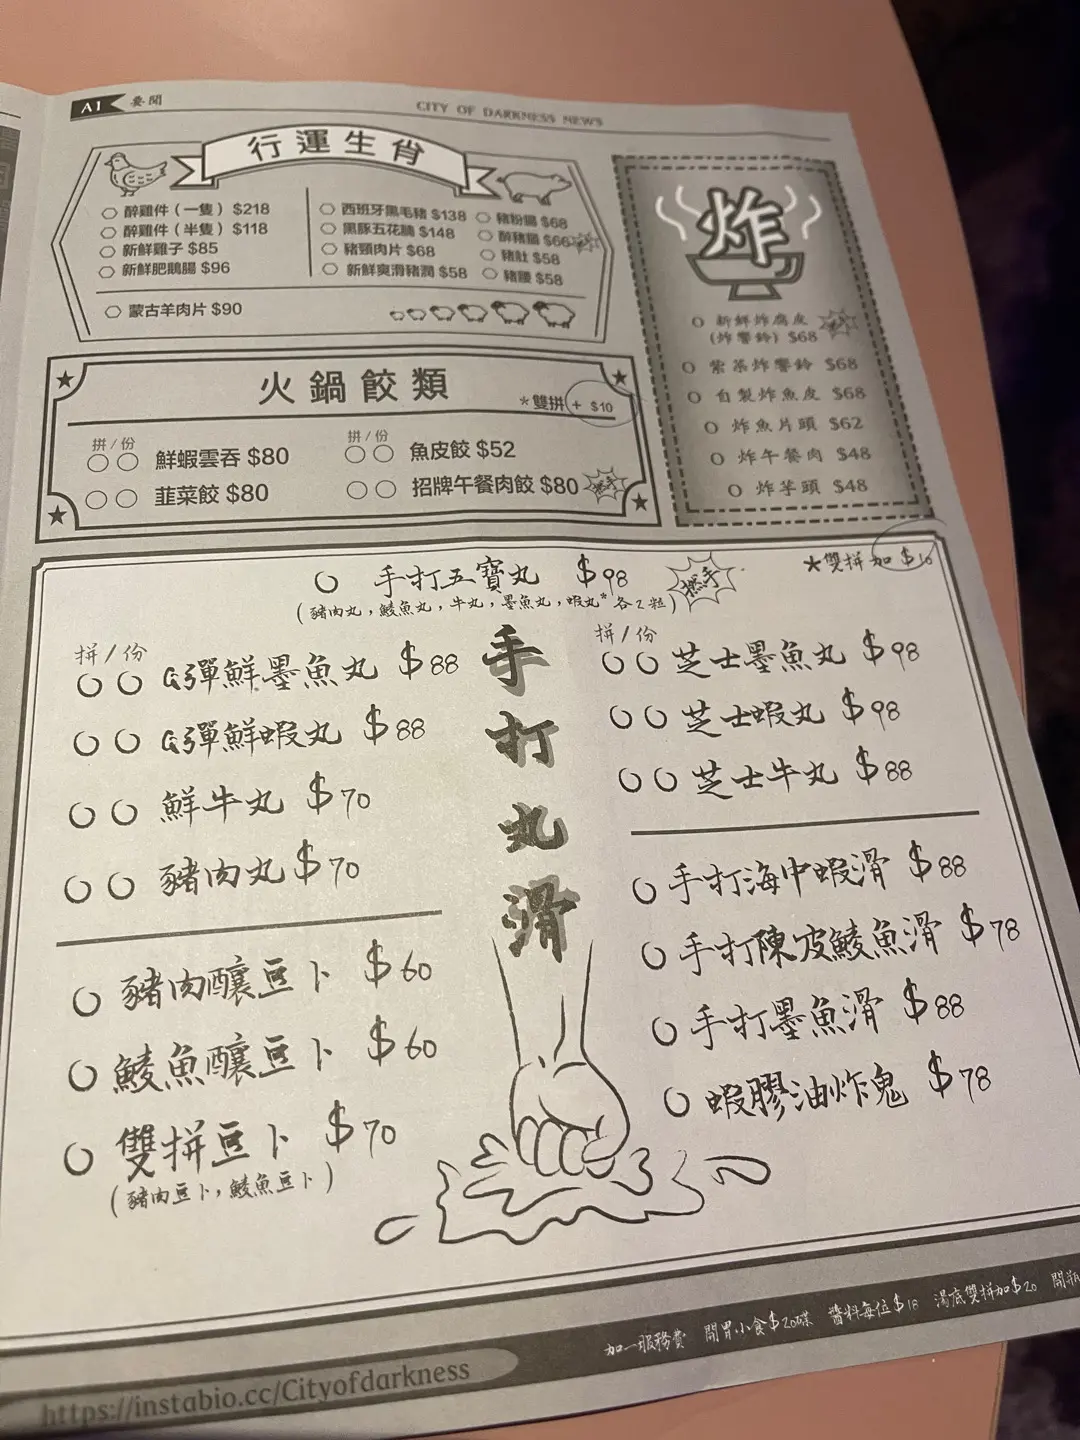 A1 要聞
CITY OF DARKNESS NEWS
行運生肖
醉雞件（一隻）$218
醉雞件（半隻）$118
新鮮雞子 $85
新鮮肥鵝腸 $96
西班牙黑毛豬 $138
黑豚五花腩 $148
豬頸肉片 $68
新鮮爽滑豬潤 $58
豬粉腸 $68
醉豬腸 $66
豬肚 $58
豬腰 $58
蒙古羊肉片 $90
炸
新鮮炸腐皮
(炸響鈴) $68
紫菜炸響鈴 $68
自製炸魚皮 $68
炸魚片頭 $62
炸午餐肉 $48
炸芋頭 $48
火鍋餃類
*雙拼 + $10
拼/份
鮮蝦雲吞 $80
韮菜餃 $80
拼/份
魚皮餃 $52
招牌午餐肉餃 $80
手打五寶丸 $98
(豬肉丸，鯪魚丸，牛丸，墨魚丸，蝦丸* 各2粒)
★雙拼加 $10
手打丸滑
拼/份
QQ彈鮮墨魚丸 $88
QQ彈鮮蝦丸 $88
鮮牛丸 $70
豬肉丸 $70
豬肉釀豆卜 $60
鯪魚釀豆卜 $60
雙拼豆卜 $70
(豬肉豆卜，鯪魚豆卜)
拼/份
芝士墨魚丸 $98
芝士蝦丸 $98
芝士牛丸 $88
手打海中蝦滑 $88
手打陳皮鯪魚滑 $78
手打墨魚滑 $88
蝦膠油炸鬼 $78
加一服務費 開胃小食$20碟 醬料每位$18 湯底雙拼加$20 開瓶
https://instabio.cc/Cityofdarkness